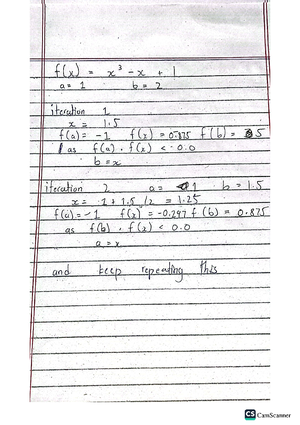 f(x) = x³ - x + 1
a = 1 b = 2
iteration 1
x = 1.5
f(a) = -1 f(x) = 0.875 f(b) = 5
as f(a) . f(x) < 0.0
b = x
iteration 2 a = 1 b = 1.5
x = 1 + 1.5 /2 = 1.25
f(a) = -1 f(x) = -0.297 f(b) = 0.875
as f(b) . f(x) < 0.0
a = x
and keep repeating this
CS CamScanner